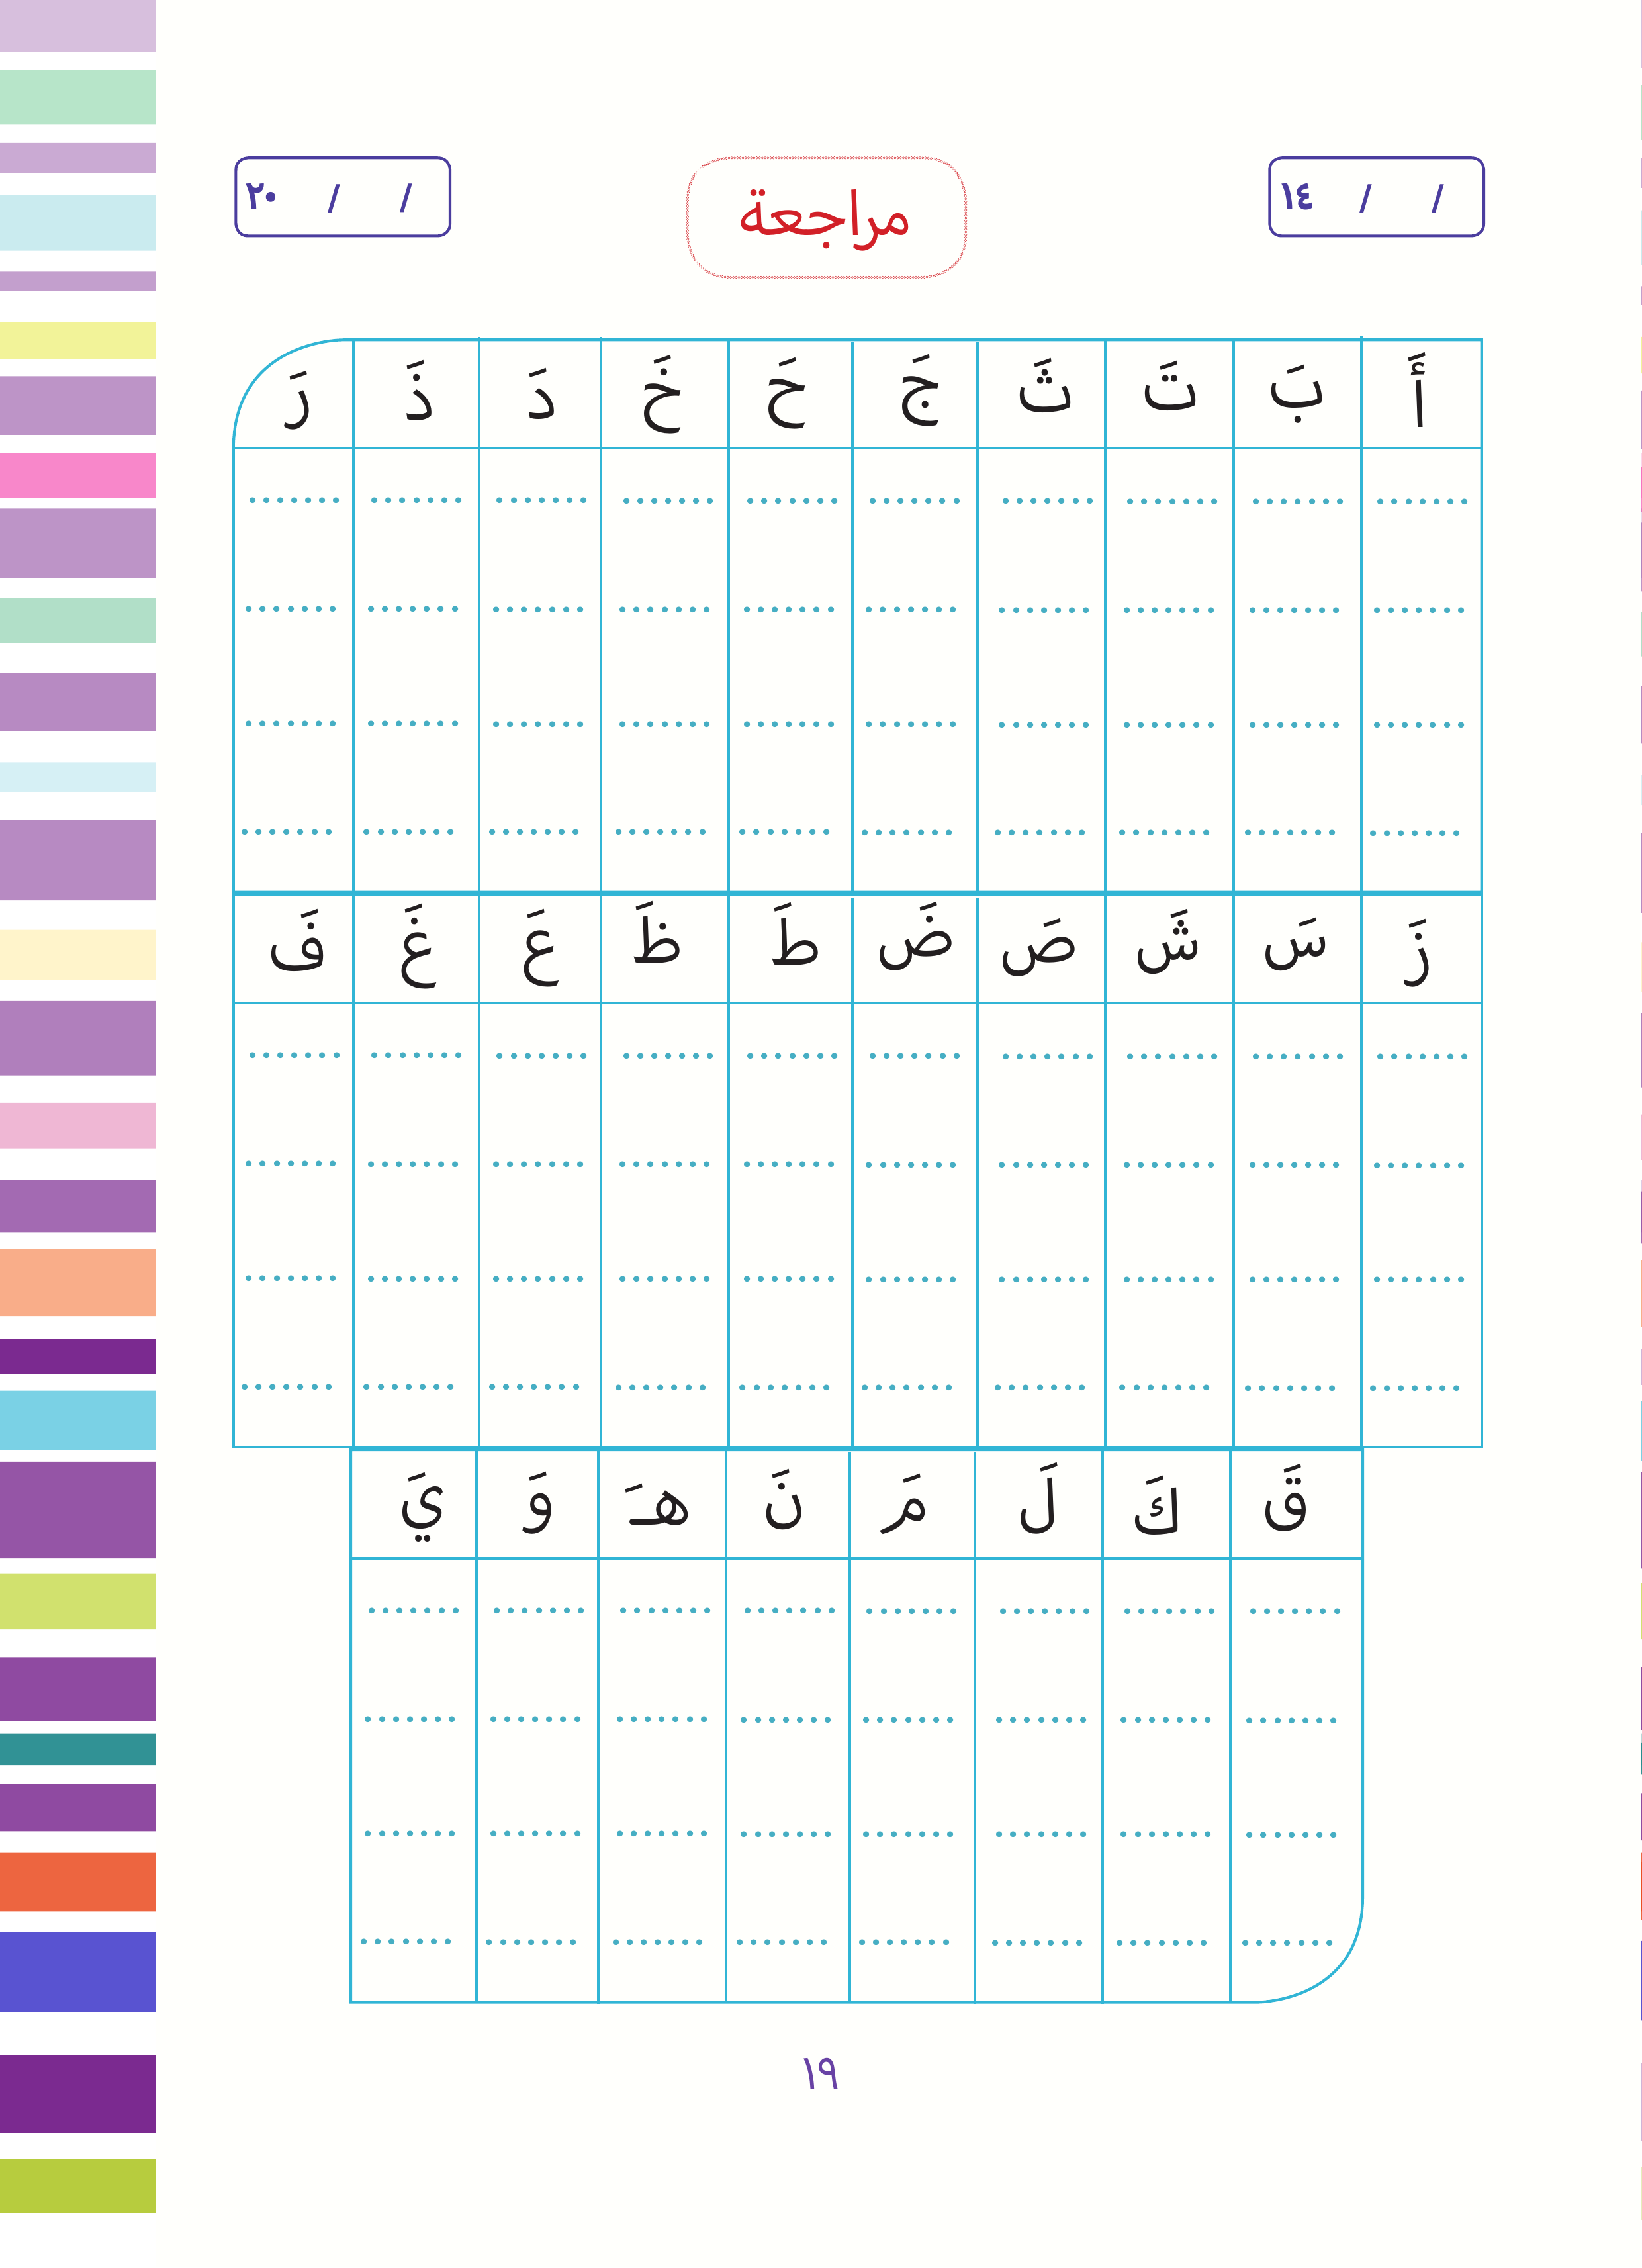 ١٤ / /
مراجعة
٢٠ / /
أَ بَ تَ ثَ جَ حَ خَ دَ ذَ رَ
زَ سَ شَ صَ ضَ طَ ظَ عَ غَ فَ
قَ كَ لَ مَ نَ هـَ وَ يَ
١٩